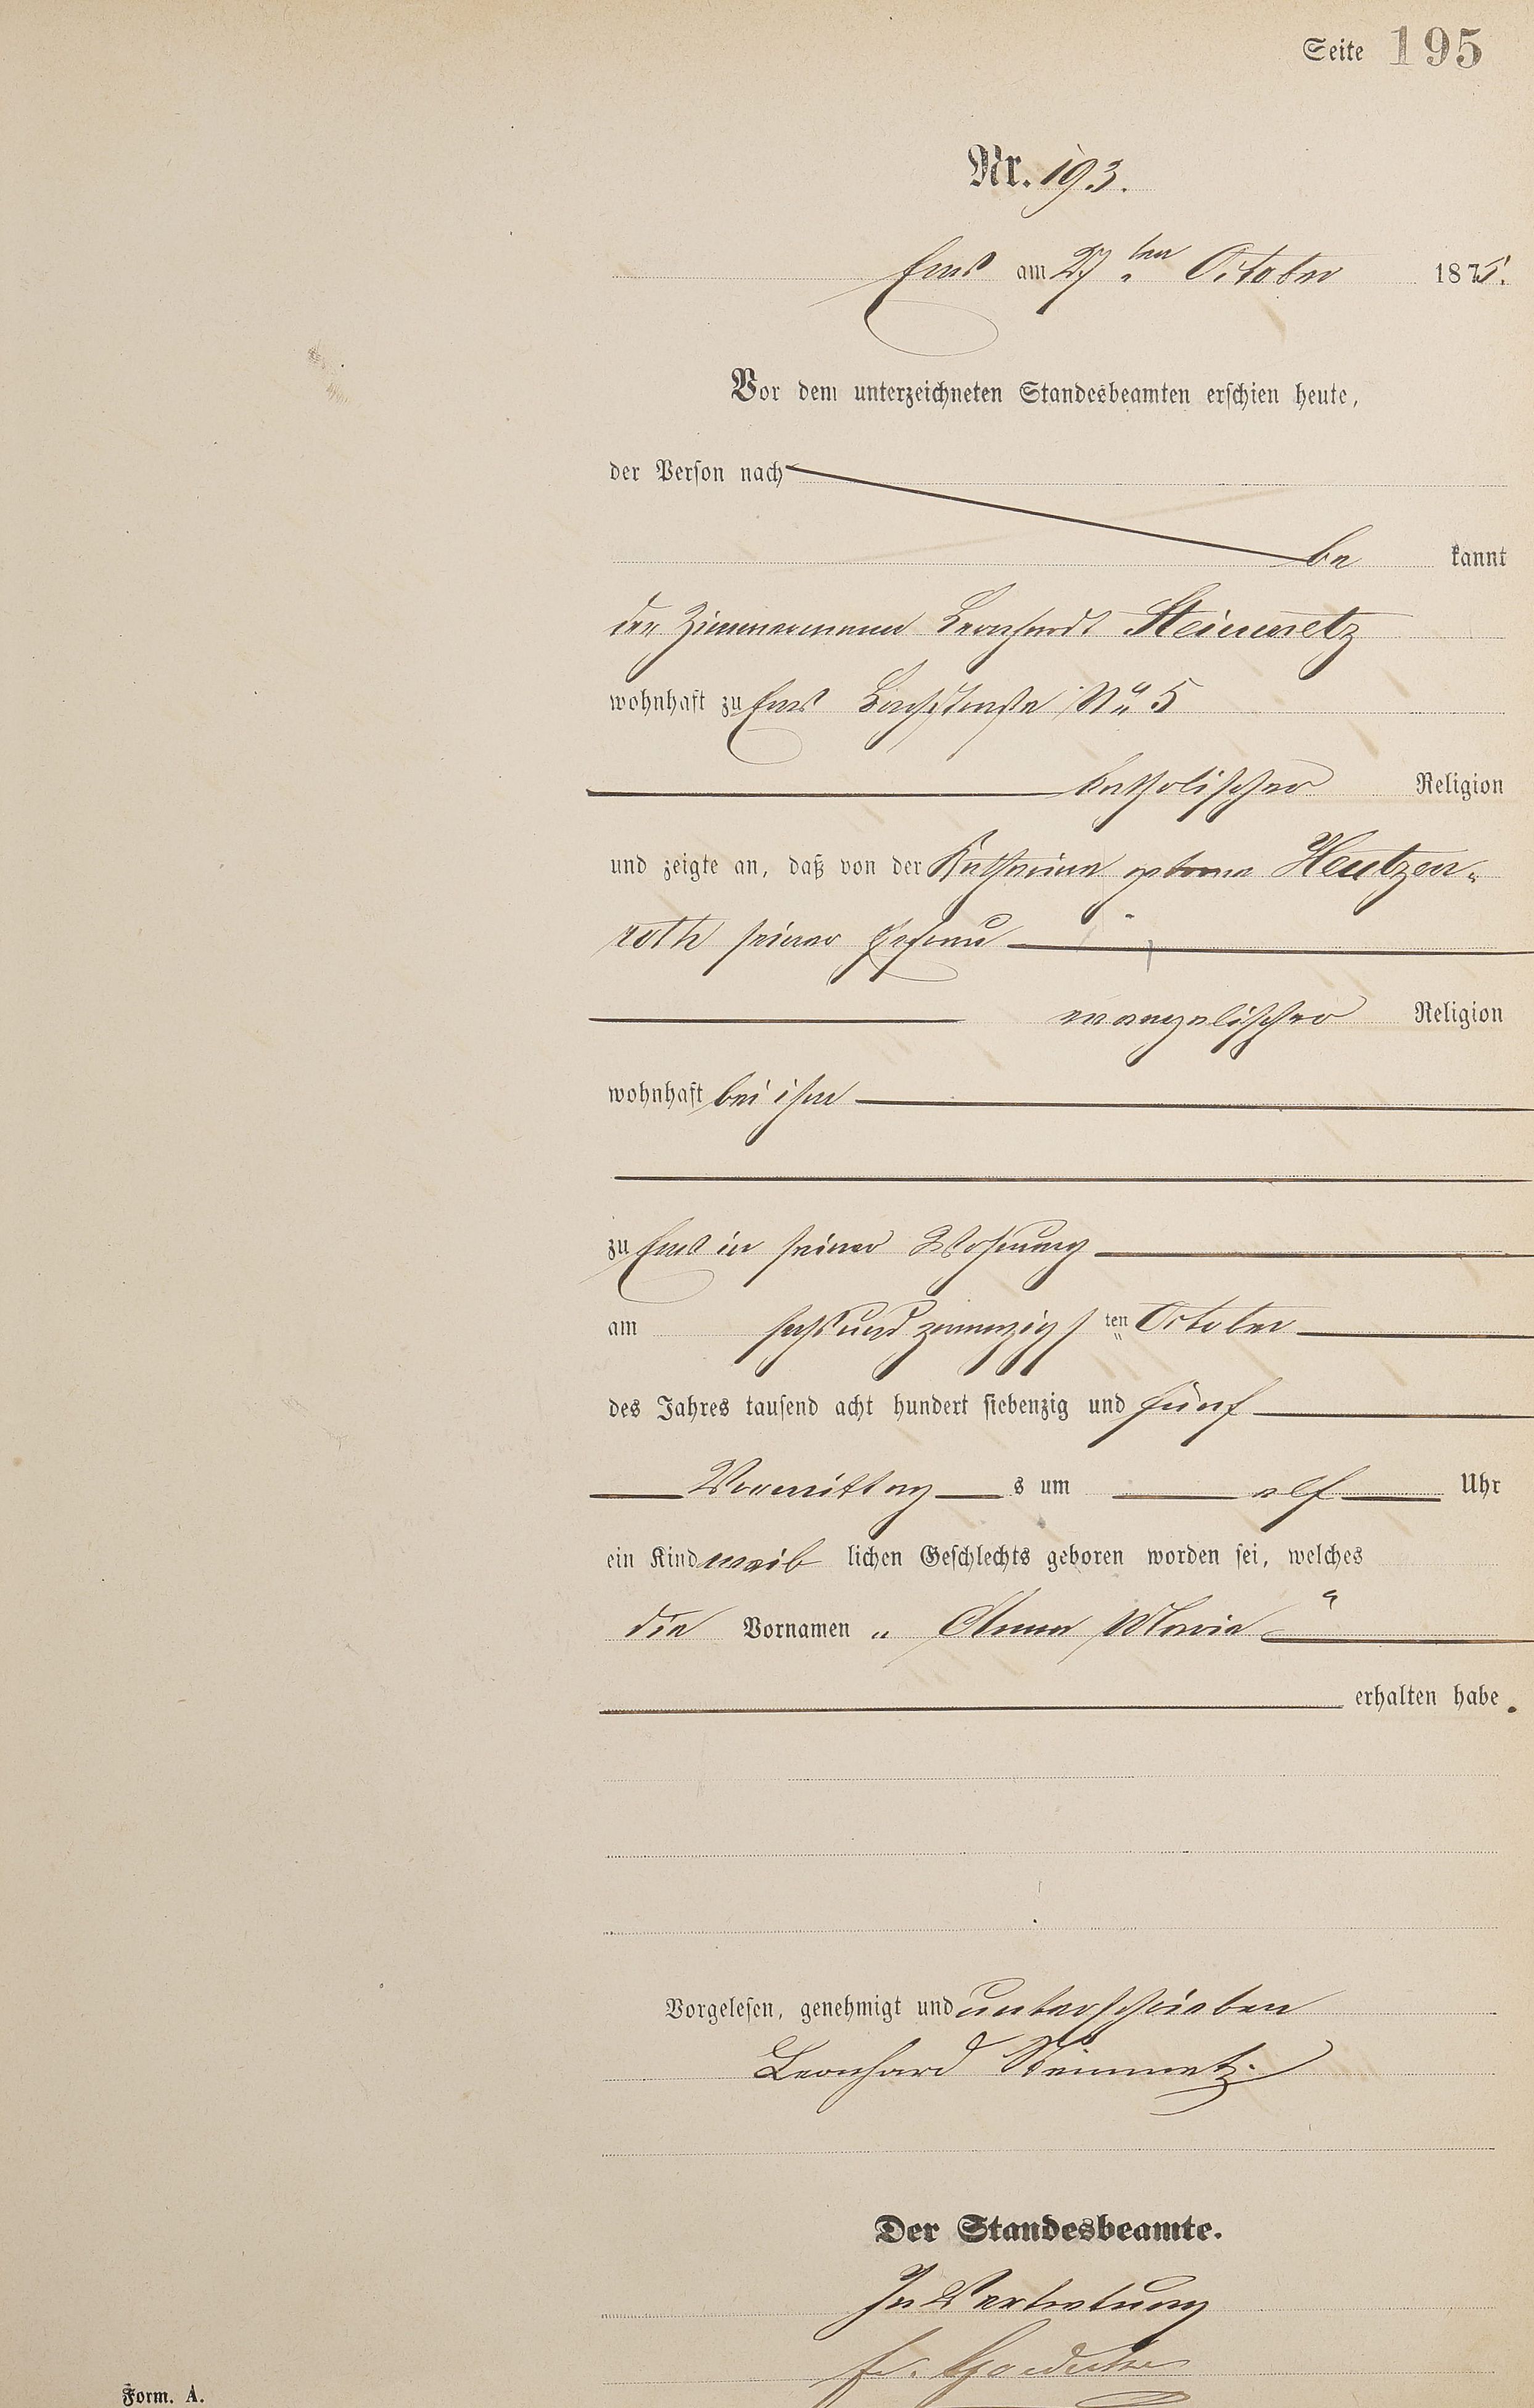 Seite 195
Nr. 193.
Ems am 27ten October 1875.
Vor dem unterzeichneten Standesbeamten erschien heute,
der Person nach
be kannt
der Zimmermann Leonhardt Steinmetz
wohnhaft zu Ems No 5
katholischer Religion
und zeigte an, daß von der Katharina geborne Heutzen-
roth seiner Ehefrau
evangelischer Religion
wohnhaft bei ihm
zu Ems in seiner Wohnung
am sechsundzwanzigsten October
des Jahres tausend acht hundert siebenzig und fünf
Vormittags um elf Uhr
ein Kind weiblichen Geschlechts geboren worden sei, welches
die Vornamen „Anna Maria“
erhalten habe.
Vorgelesen, genehmigt und unterschrieben
Leonhard Steinmetz
Der Standesbeamte.
In Vertretung
Form. A.